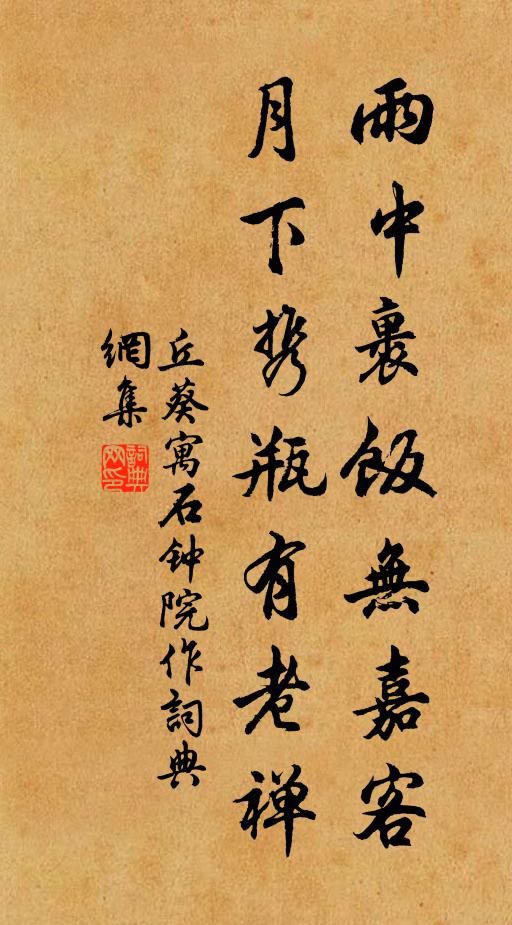 雨中裹飯無嘉客
月下携瓶有老禅
丘葵寓石钟院作詞典
網集
詞典
网印